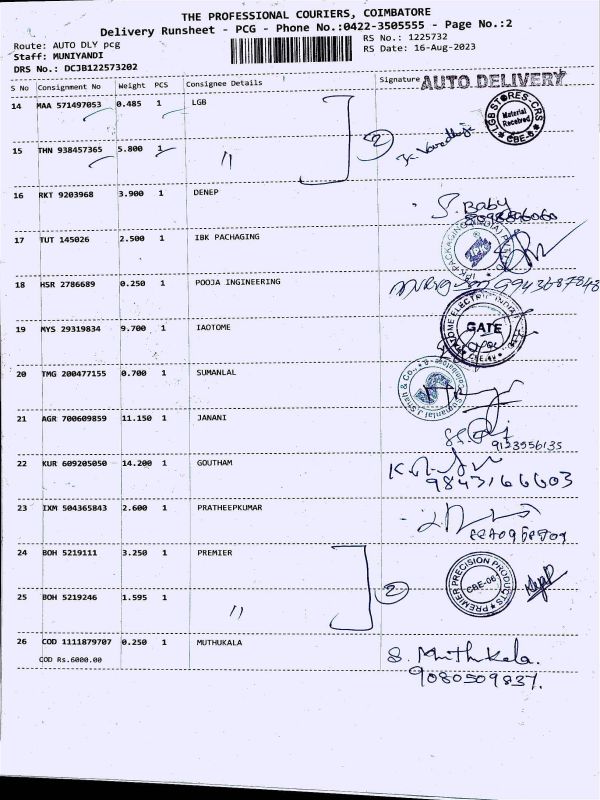 THE PROFESSIONAL COURIERS, COIMBATORE
Delivery Runsheet - PCG - Phone No.:0422-3505555 - Page No.:2
Route: AUTO DLY pcg
RS No.: 1225732
Staff: MUNIYANDI
RS Date: 16-Aug-2023
DRS No.: DCJB122573202
S No Consignment No Weight PCS Consignee Details Signature AUTO DELIVERY
14 MAA 571497053 0.485 1 LGB
LGB STORES-CRS Material Received CBE-6
15 THN 938457365 5.800 1 " 2
16 RKT 9203968 3.900 1 DENEP
S. Baby
17 TUT 145026 2.500 1 IBK PACHAGING
18 HSR 2786689 0.250 1 POOJA INGINEERING
19 MYS 29319834 9.700 1 IAOTOME
GATE
20 TMG 200477155 0.700 1 SUMANLAL
21 AGR 700609859 11.150 1 JANANI
22 KUR 609205050 14.200 1 GOUTHAM
9843166603
23 IXM 504365843 2.600 1 PRATHEEPKUMAR
24 BOH 5219111 3.250 1 PREMIER
PREMIER PRECISION PRODUCTS CBE-06
25 BOH 5219246 1.595 1 " 2
26 COD 1111879707 0.250 1 MUTHUKALA
COD Rs.6000.00
S. Muthukala.
9080509837.